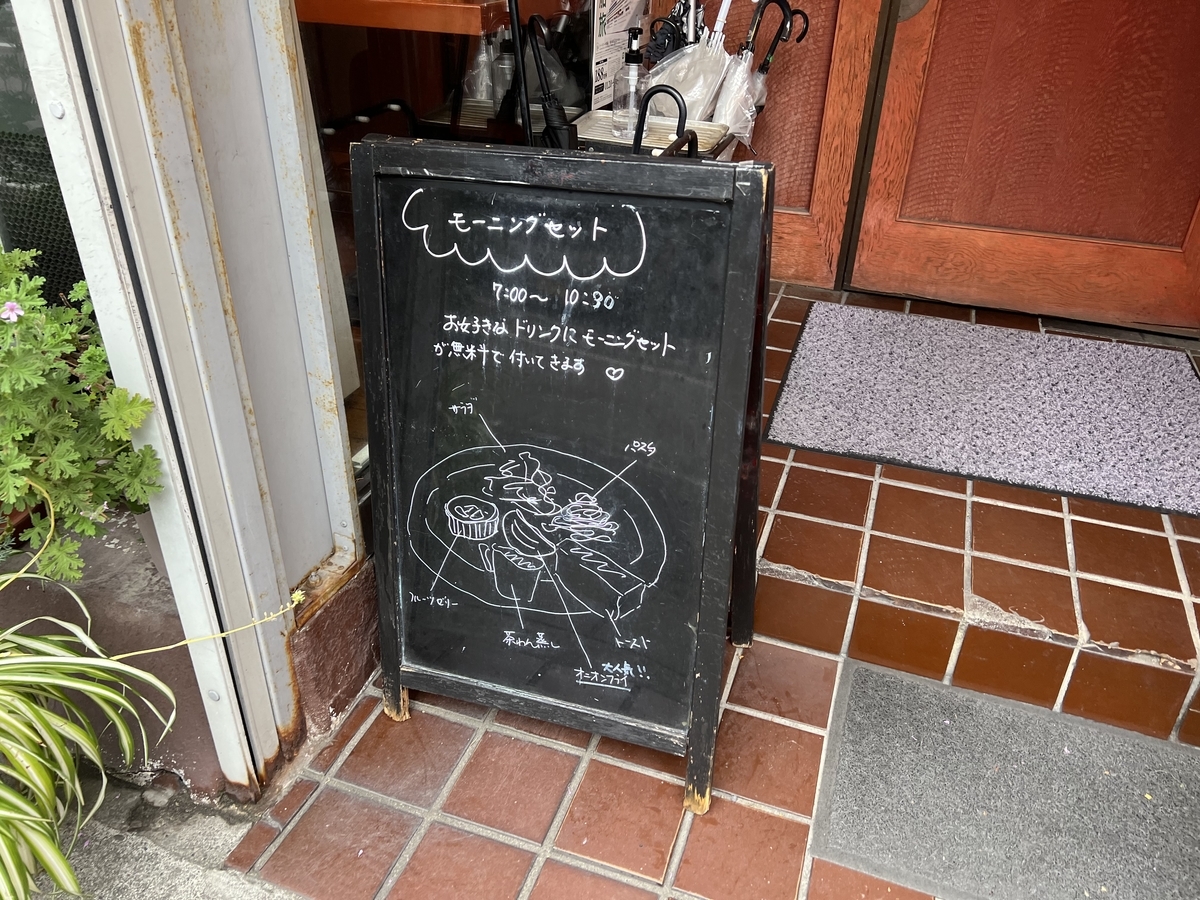 モーニングセット
7:00〜 10:30
お好きな ドリンクに モーニングセット
が無料で付いてきます ♡
サラダ
パスタ
フルーツゼリー
茶わん蒸し
トースト
大人気!!
オニオンフライ